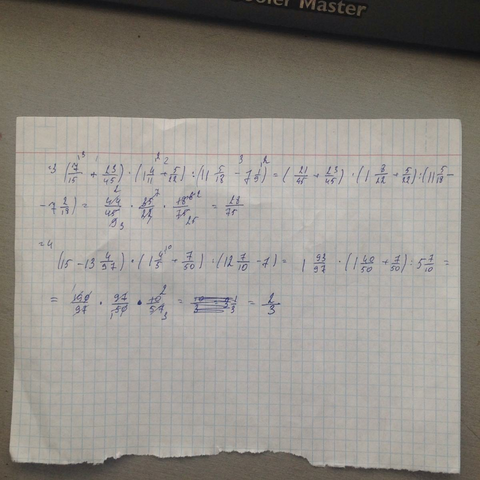 ooler Master
3 (7/15 + 23/45) · (1 4/11 + 5/22) : (11 5/18 - 7 1/9) = (21/45 + 23/45) · (1 8/22 + 5/22) : (11 5/18 -
- 7 2/18) = 44/45 · 35/22 · 18/75 = 28/75
4
(15 - 13 4/97) · (1 4/5 + 7/50) : (12 7/10 - 7) = 1 93/97 · (1 40/50 + 7/50) : 5 7/10 =
= 190/97 · 97/50 · 10/57 = 2/3